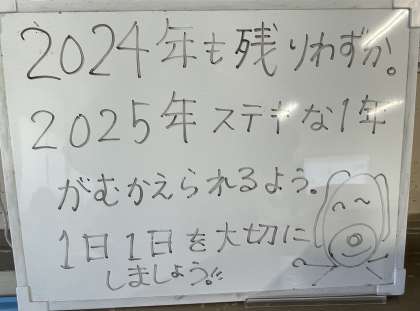 2024年も残りわずか。
2025年ステキな1年
がむかえられるよう。
1日1日を大切に
しましょう!!